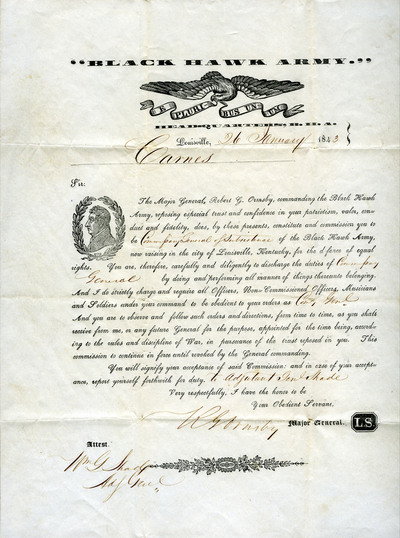 "BLACK HAWK ARMY."
E PLURIBUS UNUM
HEADQUARTERS, B. H. A.
Louisville, 26 January 1843
Carnes
Sir:
The Major General, Robert G. Ormsby, commanding the Black Hawk
Army, reposing especial trust and confidence in your patriotism, valor, con-
duct and fidelity, does, by these presents, constitute and commission you to
be Commissary General of Subsistence of the Black Hawk Army,
now raising in the city of Louisville, Kentucky, for the defence of equal
rights. You are, therefore, carefully and diligently to discharge the duties of
General by doing and performing all manner of things thereunto belonging.
And I do strictly charge and require all Officers, Non-Commissioned Officers, Musicians
and Soldiers under your command to be obedient to your orders as
And you are to observe and follow such orders and directions, from time to time, as you shall
receive from me, or any future General for the purpose, appointed for the time being, accord-
ing to the rules and discipline of War, in pursuance of the trust reposed in you. This
commission to continue in force until revoked by the General commanding.
You will signify your acceptance of said Commission: and in case of your accept-
ance, report yourself forthwith for duty, to Adjutant Genl Shade
Very respectfully, I have the honor to be
Your Obedient Servant,
Ormsby Major General. L S
Attest.
Wm G Shade
Adj Genl